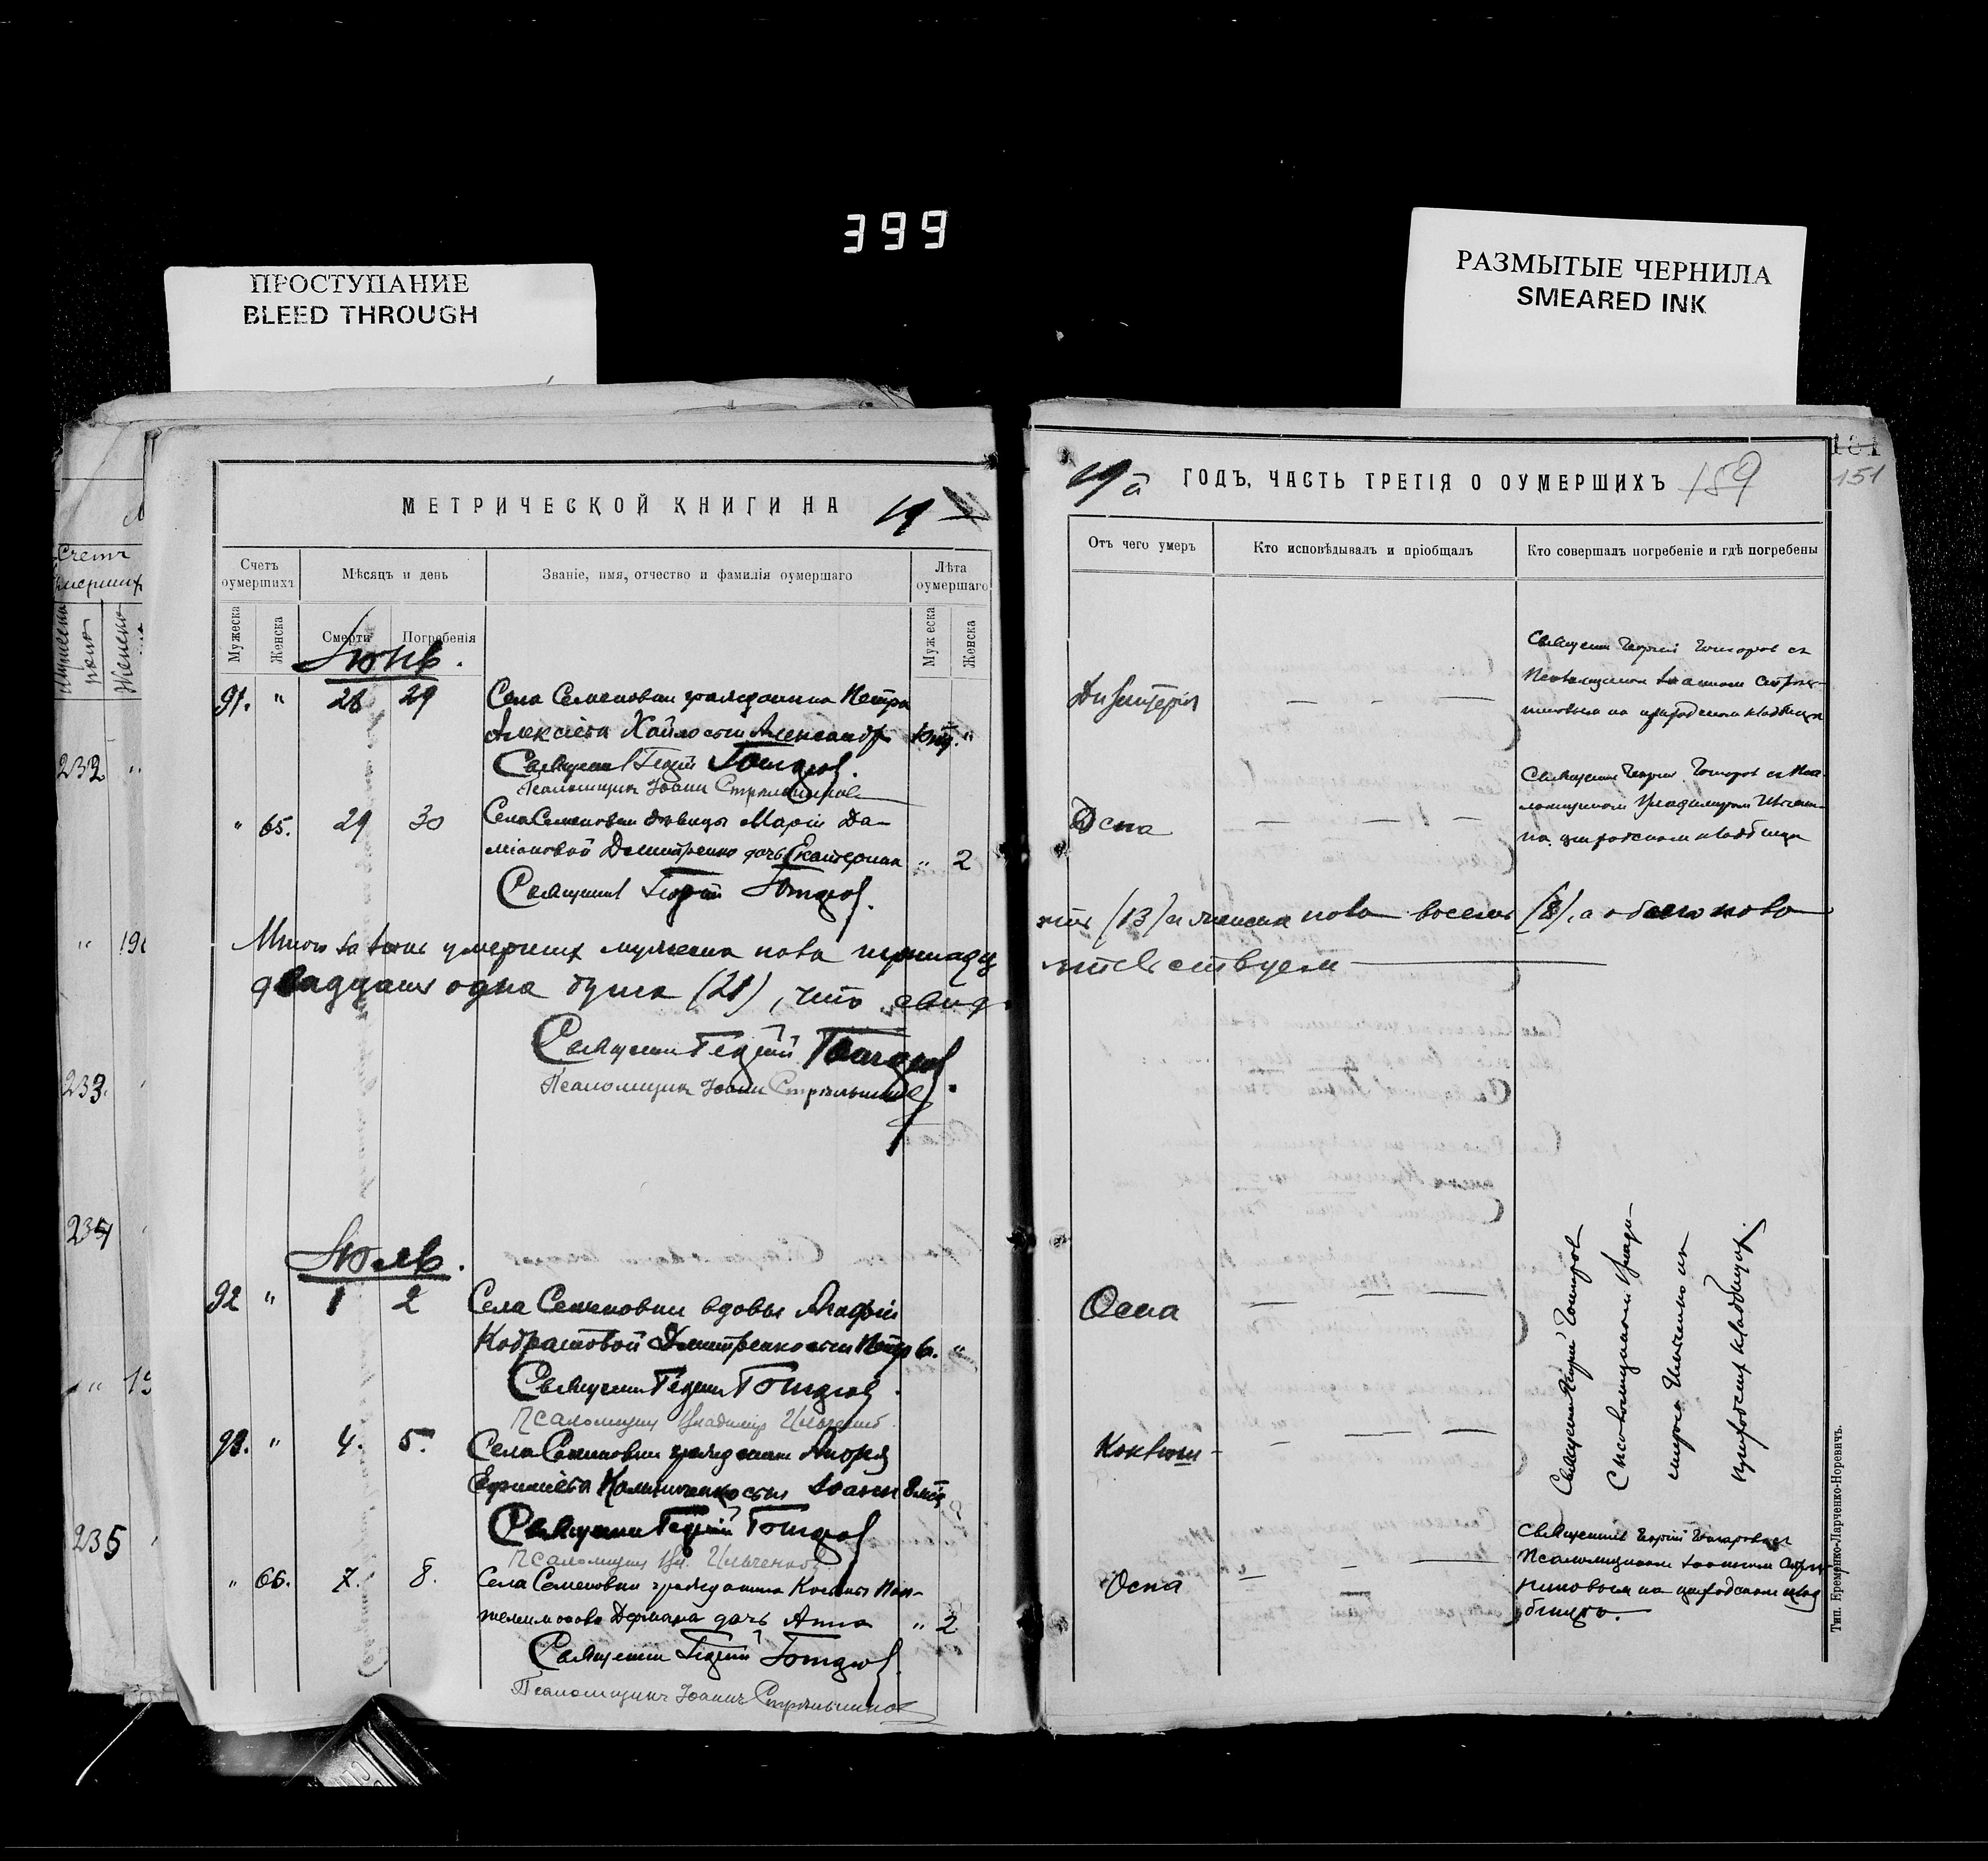 399
ПРОСТУПАНИЕ
BLEED THROUGH
РАЗМЫТЫЕ ЧЕРНИЛА
SMEARED INK
МЕТРИЧЕСКОЙ КНИГИ НА
Счетъ оумершихъ
Мѣсяцъ и день
Званіе, имя, отчество и фамилія оумершаго
Лѣта оумершаго
Мужеска
Женска
Смерти
Погребенія
Мужеска
Женска
Іюнь.
91. " 28 29 Села Семеновки гражданина Петра
Алексіева сынъ Александръ "
Священникъ Георгій
Псаломщикъ Іоаннъ Стрельниковъ
" 65. 29 30 Села Семеновки дѣвицы Маріи Да-
міановой Дмитренко дочь Екатерина " 2
Священникъ Георгій
Итого въ Іюнѣ умершихъ мужеска пола тринадц
двадцать одна душа (21), что свид
Священникъ Георгій
Псаломщикъ Іоаннъ Стрельниковъ
Іюль.
92 " 1 2 Села Семеновки вдовы
Дмитренко сынъ Петръ 6. "
Священникъ Георгій
Псаломщикъ Владиміръ Ильченко
93. " 4. 5. Села Семеновки гражданина Андрея
Ефиміева Калиниченко сынъ Іоаннъ
Священникъ Георгій
Псаломщикъ Вл. Ильченко
" 66. 7. 8. Села Семеновки гражданина Космы Пан-
телимонова дочь Анна " 2
Священникъ Георгій
Псаломщикъ Іоаннъ Стрельниковъ
232 "
" 19
233.
234
" 19
235
19й ГОДЪ, ЧАСТЬ ТРЕТІЯ О ОУМЕРШИХЪ 159
151
Отъ чего умеръ
Кто исповѣдывалъ и пріобщалъ
Кто совершалъ погребеніе и гдѣ погребены
Дизентерія — - —
Священникъ Георгій съ
Псаломщикомъ Іоанномъ Стрель-
никовымъ на приходскомъ кладбищѣ
Оспа — — —
Священникъ Георгій съ Пса-
ломщикомъ Владиміромъ Ильченко
на приходскомъ кладбищѣ
ать (13) и женска пола восемь (8), а обоего пола
ѣтельствуемъ
Оспа — — —
Священникъ Георгій
съ псаломщикомъ Влади-
міромъ Ильченко на
приходскомъ кладбищѣ.
Коклюшъ - — —
Оспа — - —
Священникъ Георгій съ
Псаломщикомъ Іоанномъ Стрель-
никовымъ на приходскомъ клад-
бищѣ.
Тип. Еременко-Ларченко-Норевичъ.